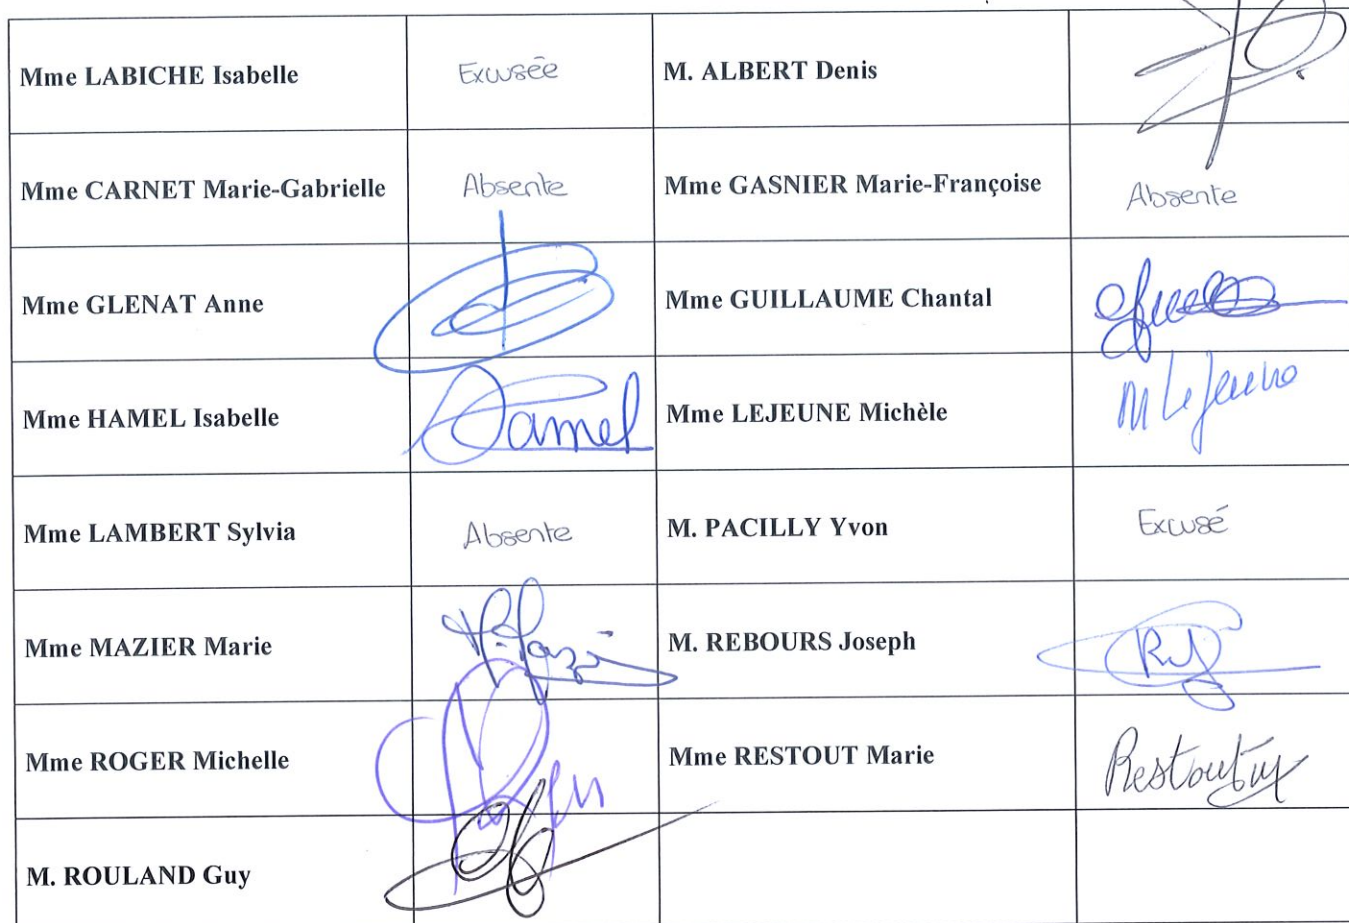 Mme LABICHE Isabelle Excusée M. ALBERT Denis
Mme CARNET Marie-Gabrielle Absente Mme GASNIER Marie-Françoise Absente
Mme GLENAT Anne Mme GUILLAUME Chantal
Mme HAMEL Isabelle Hamel Mme LEJEUNE Michèle M Lejeune
Mme LAMBERT Sylvia Absente M. PACILLY Yvon Excusé
Mme MAZIER Marie M. REBOURS Joseph RJ
Mme ROGER Michelle Mme RESTOUT Marie Restout
M. ROULAND Guy